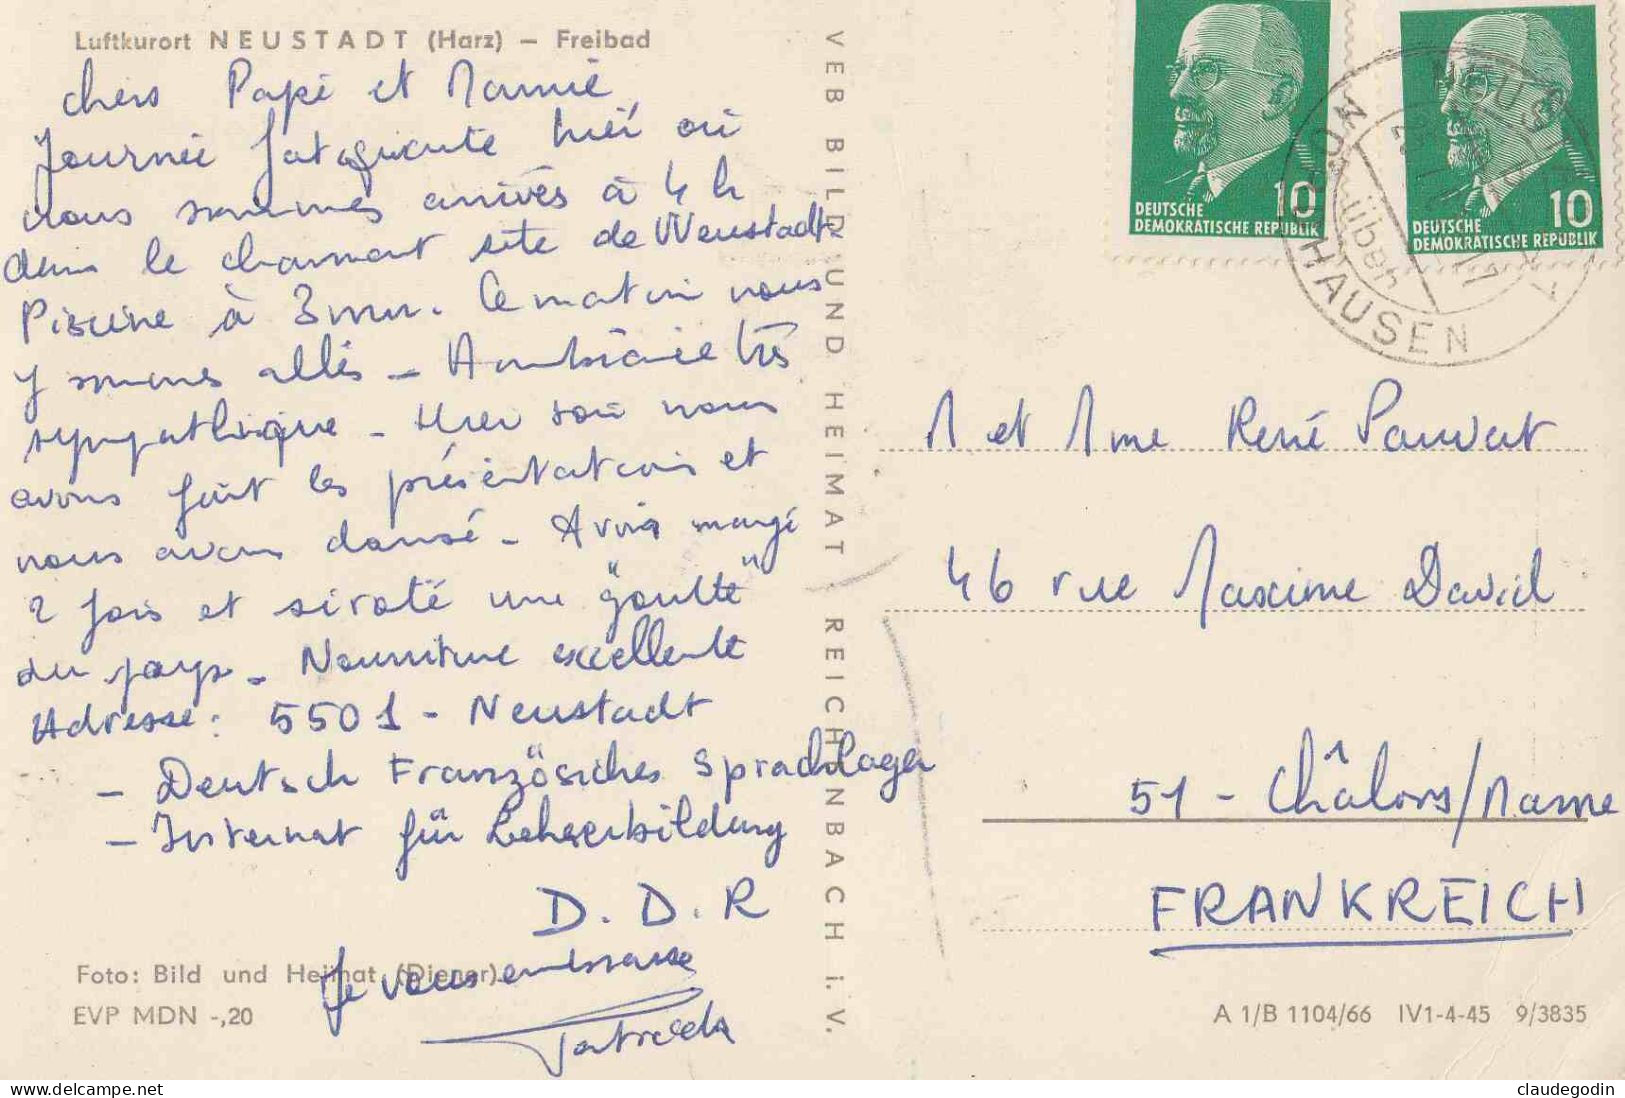 Luftkurort NEUSTADT (Harz) – Freibad
chers Papé et Mamie
Journée fatiguante hier où
nous sommes arrivés à 4 h
dans le charmant site de Neustadt
Piscine à 3 mn. Ce matin nous
y sommes allés – Ambiance très
sympathique – Hier soir nous
avons fait les présentations et
nous avons dansé – Avons mangé
2 fois et siroté une "goutte"
du pays – Nourriture excellente
Adresse : 5501 – Neustadt
– Deutsch Französisches Sprachlager
– Internat für Lehrerbildung
D. D. R
Je vous embrasse
Foto: Bild und Heimat (Diener)
EVP MDN -,20
VEB BILD UND HEIMAT REICHENBACH i. V.
DEUTSCHE
DEMOKRATISCHE REPUBLIK
10
DEUTSCHE
DEMOKRATISCHE REPUBLIK
10
über
NORDHAUSEN
M et Mme René Pauvat
46 rue Maxime David
51 – Châlons/Marne
FRANKREICH
A 1/B 1104/66 IV1-4-45 9/3835
claudegodin